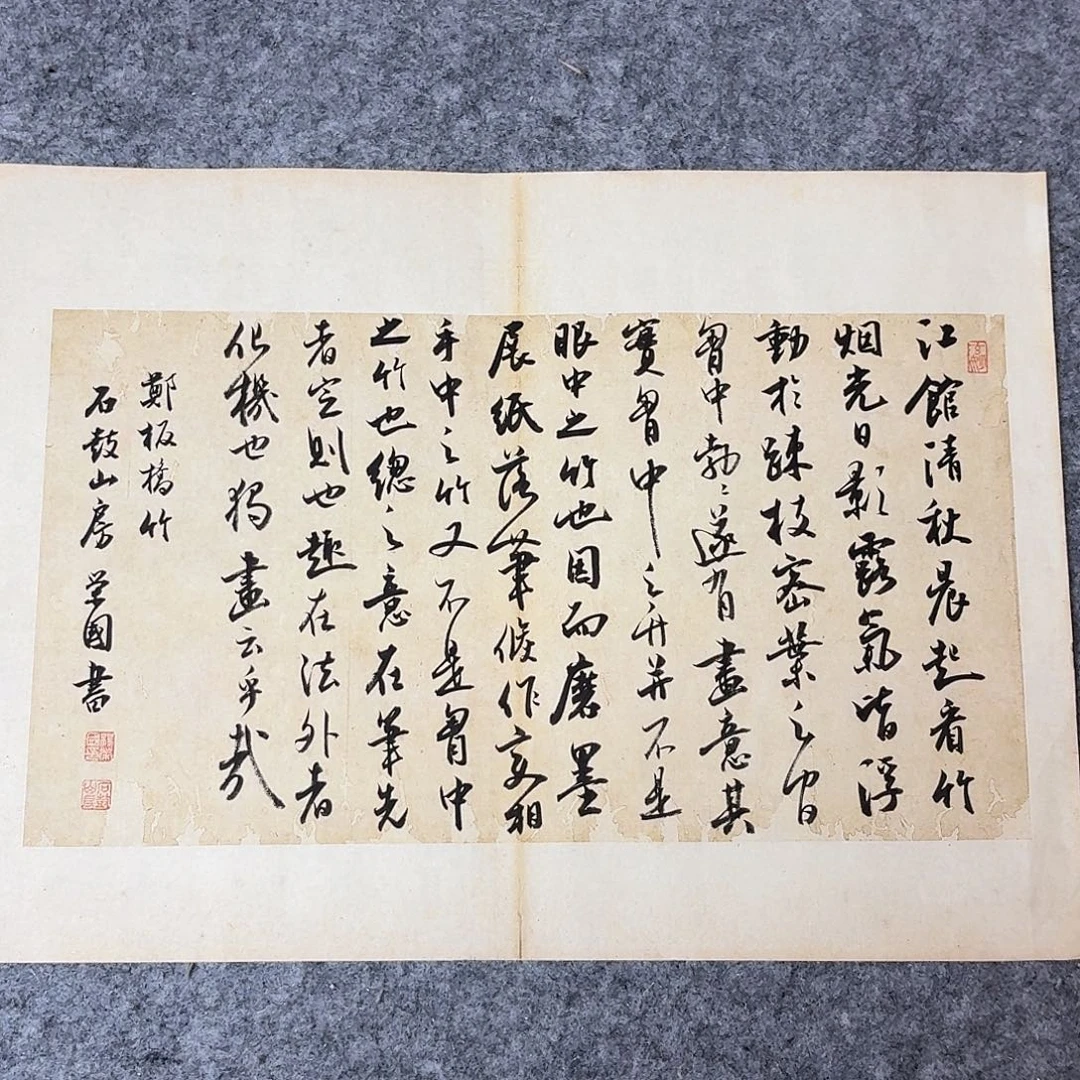 江館清秋晨起看竹
烟光日影露氣皆浮
動於疎枝密葉之間
胷中勃〻遂有畫意其
實胷中之竹并不是
眼中之竹也因而磨墨
展紙落筆倏作变相
手中之竹又不是胷中
之竹也總之意在筆先
者定則也趣在法外者
化機也獨畫云乎哉
鄭板橋竹
石鼓山房國書